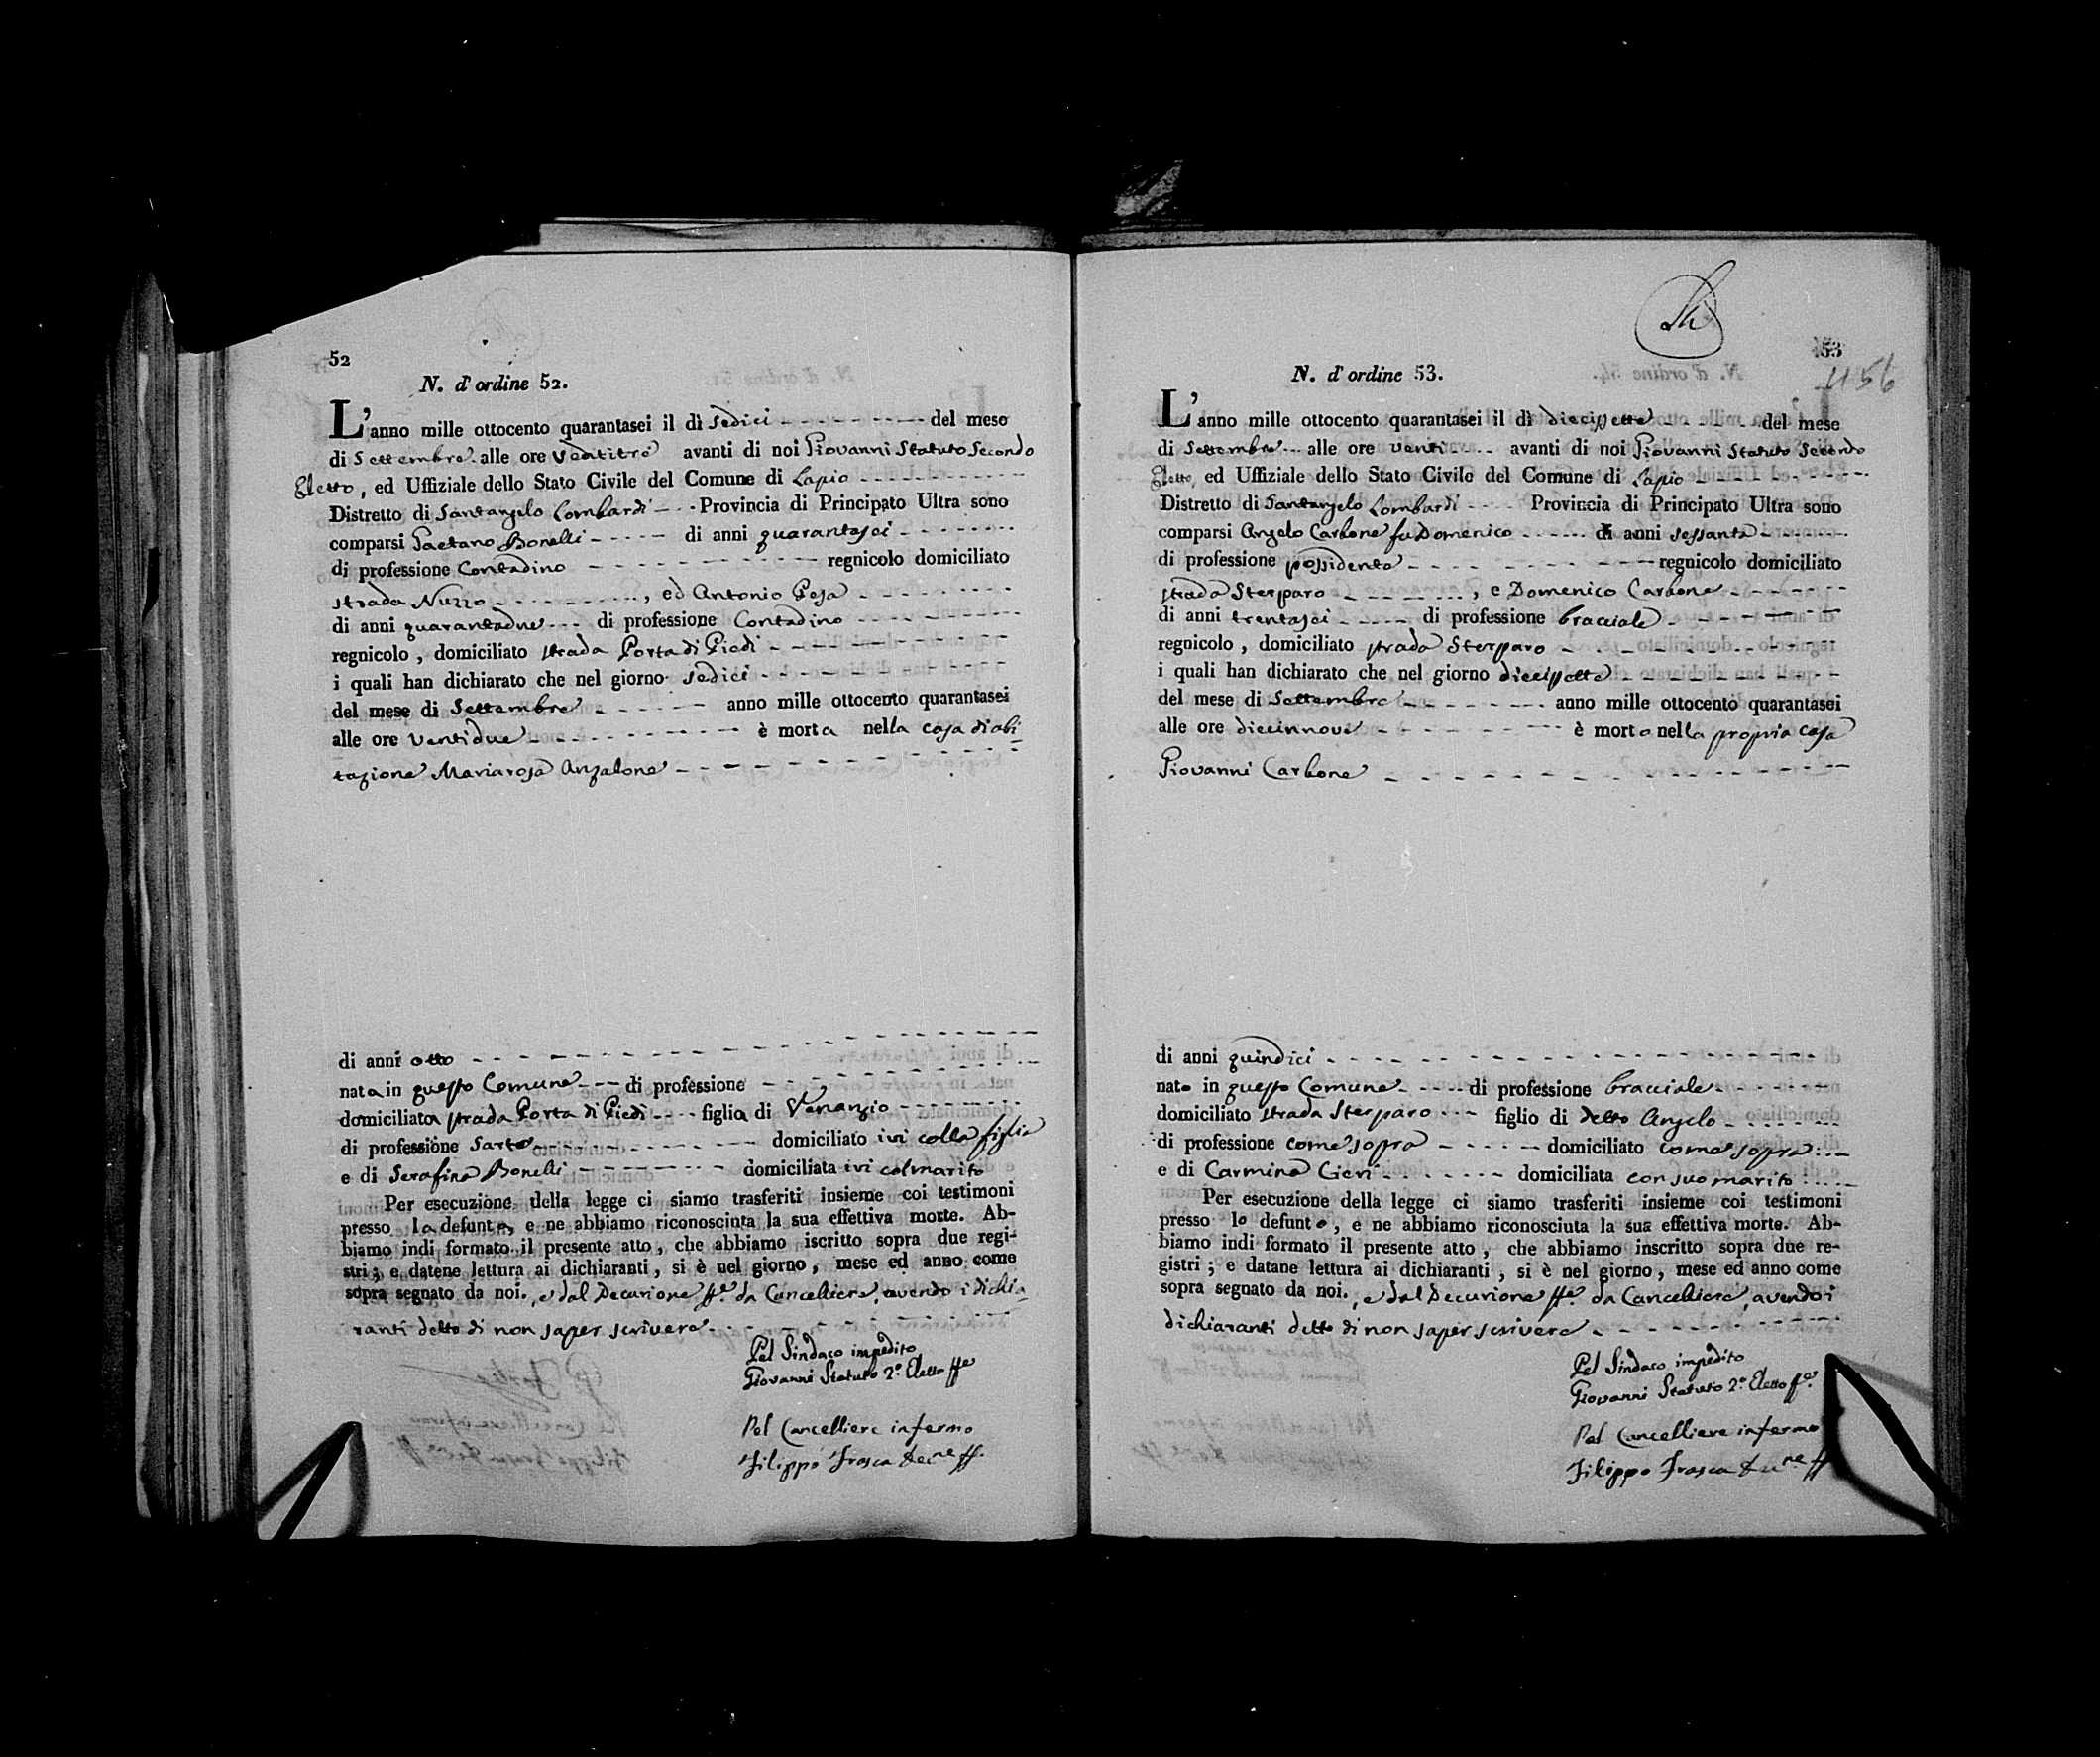 52
N. d'ordine 52.
L'anno mille ottocento quarantasei il dì sedici del mese
di Settembre alle ore ventitre avanti di noi Giovanni Statuto Secondo
Eletto, ed Uffiziale dello Stato Civile del Comune di Lapio
Distretto di Santangelo Lombardi Provincia di Principato Ultra sono
comparsi Gaetano Bonelli di anni quarantasei
di professione Contadino regnicolo domiciliato
strada Nuzzo, ed Antonio Pesa
di anni quarantadue di professione Contadino
regnicolo, domiciliato strada Porta di Piedi
i quali han dichiarato che nel giorno sedici
del mese di Settembre anno mille ottocento quarantasei
alle ore ventidue è morta nella casa di abi
tazione Mariarosa Anzalone
di anni otto
nata in questo Comune di professione
domiciliata strada Porta di Piedi figlia di Venanzio
di professione Sarto domiciliato ivi colla figlia
e di Serafina Bonelli domiciliata ivi col marito
Per esecuzione della legge ci siamo trasferiti insieme coi testimoni
presso la defunta, e ne abbiamo riconosciuta la sua effettiva morte. Ab-
biamo indi formato il presente atto, che abbiamo iscritto sopra due regi-
stri; e datene lettura ai dichiaranti, si è nel giorno, mese ed anno come
sopra segnato da noi, e dal Decurione ff.e da Cancelliere, avendo i dichia
ranti detto di non saper scrivere
Pel Sindaco impedito
Giovanni Statuto 2.° Eletto ff.e
Pel Cancelliere infermo
Filippo Frasca Dec.ne ff.
53
56
N. d'ordine 53.
L'anno mille ottocento quarantasei il dì diecissette del mese
di Settembre alle ore venti avanti di noi Giovanni Statuto Secondo
Eletto, ed Uffiziale dello Stato Civile del Comune di Lapio
Distretto di Santangelo Lombardi Provincia di Principato Ultra sono
comparsi Angelo Carbone fu Domenico di anni sessanta
di professione possidente regnicolo domiciliato
strada Sterparo, e Domenico Carbone
di anni trentasei di professione bracciale
regnicolo, domiciliato strada Sterparo
i quali han dichiarato che nel giorno diecissette
del mese di Settembre anno mille ottocento quarantasei
alle ore diecinnove è morto nella propria casa
Giovanni Carbone
di anni quindici
nato in questo Comune di professione bracciale
domiciliato strada Sterparo figlio di detto Angelo
di professione come sopra domiciliato come sopra
e di Carmina Cieri domiciliata con suo marito
Per esecuzione della legge ci siamo trasferiti insieme coi testimoni
presso lo defunto, e ne abbiamo riconosciuta la sua effettiva morte. Ab-
biamo indi formato il presente atto, che abbiamo inscritto sopra due re-
gistri; e datane lettura ai dichiaranti, si è nel giorno, mese ed anno come
sopra segnato da noi, e dal Decurione ff.e da Cancelliere, avendo i
dichiaranti detto di non saper scrivere
Pel Sindaco impedito
Giovanni Statuto 2.° Eletto f.e
Pel Cancelliere infermo
Filippo Frasca Dec.ne ff